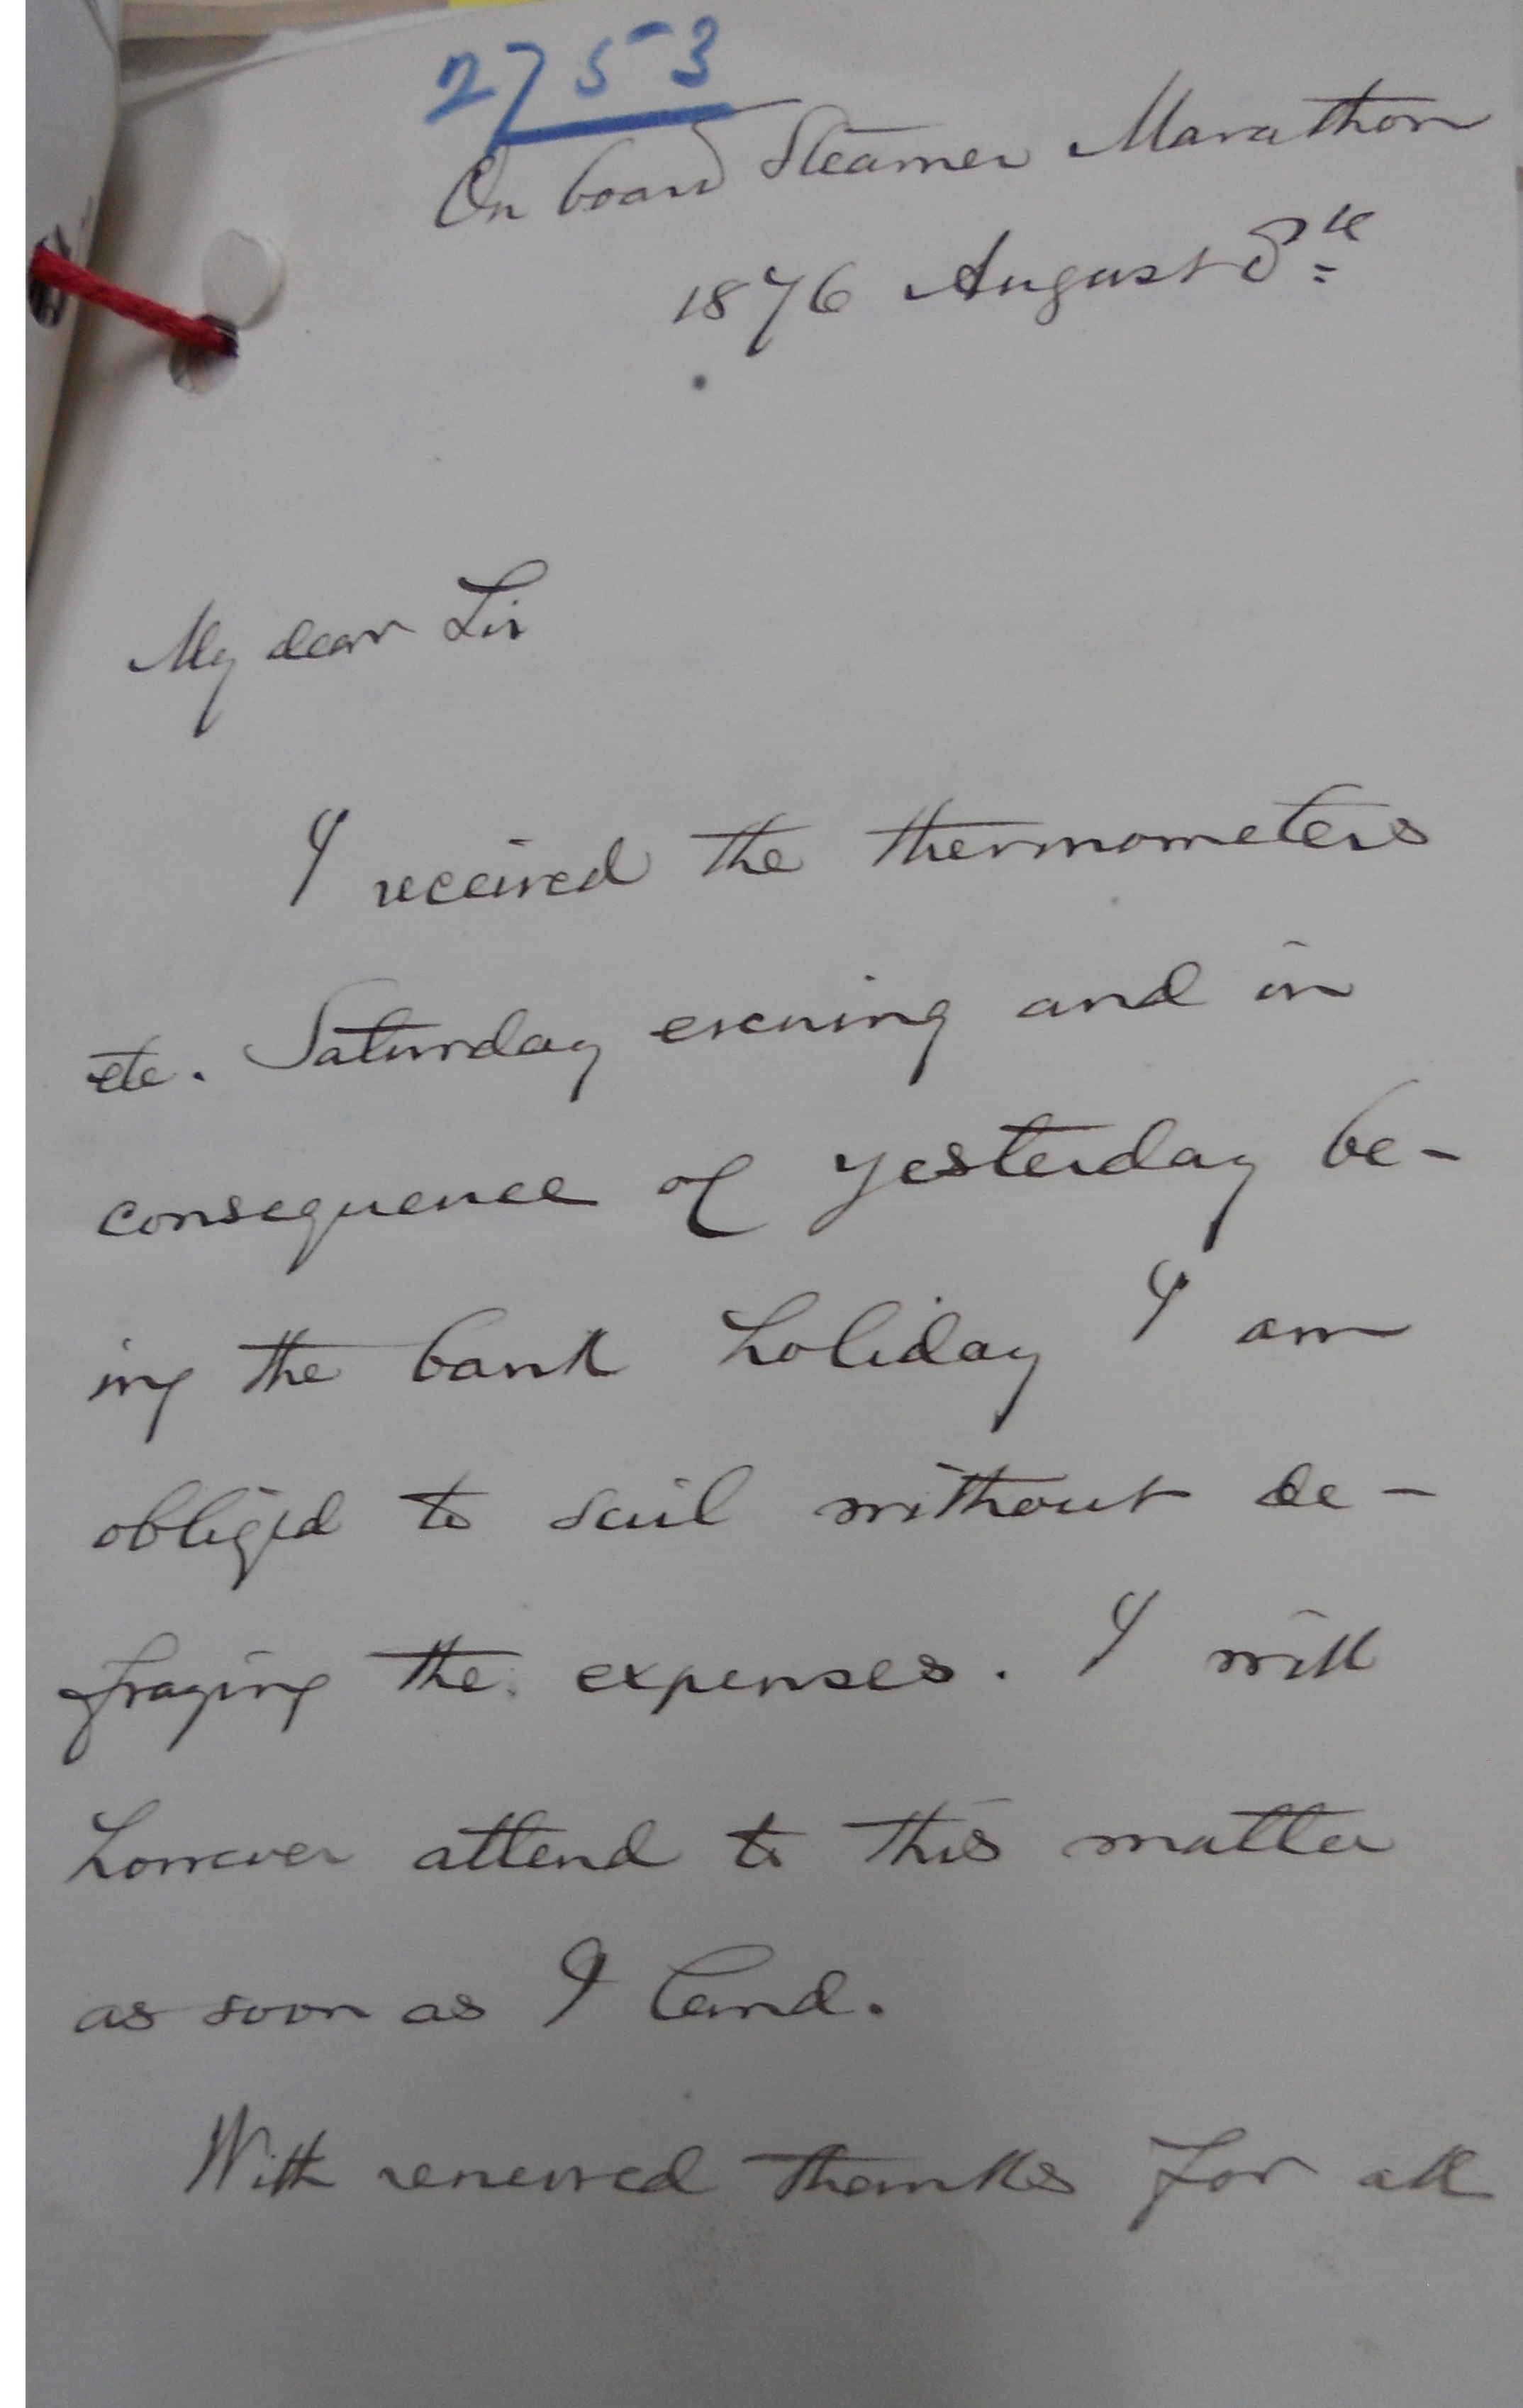 2753
On board Steamer Marathon
1876 August 8th
My dear Sir
I received the thermometers
etc. Saturday evening and in
consequence of yesterday be-
ing the bank holiday I am
obliged to sail without de-
fraying the expenses. I will
however attend to this matter
as soon as I land.
With renewed thanks for all